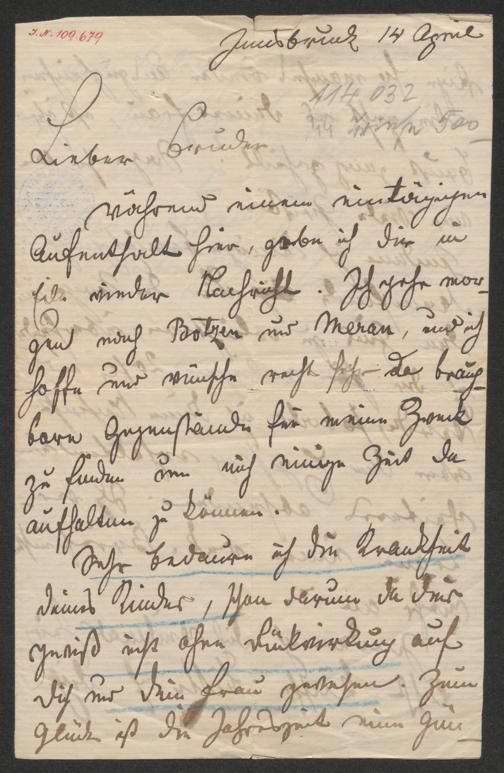 J.N. 109.679
Innsbruck 14 April
114 032
500
Lieber Bruder
Während einem eintägigen
Aufenthalt hier, gebe ich dir in
Eile wieder Nachricht. Ich gehe mor-
gen nach Botzen und Meran, und ich
hoffe und wünsche recht sehr da brauch-
bare Gegenstände für meine Zweck
zu finden um mich einige Zeit da
aufhalten zu können.
Sehr bedaure ich die Krankheit
deines Kindes, schon darum da dies
gewiß nicht ohne Rückwirkung auf
dich und dein Frau gewesen. Zum
Glück ist die Jahreszeit eine gün-